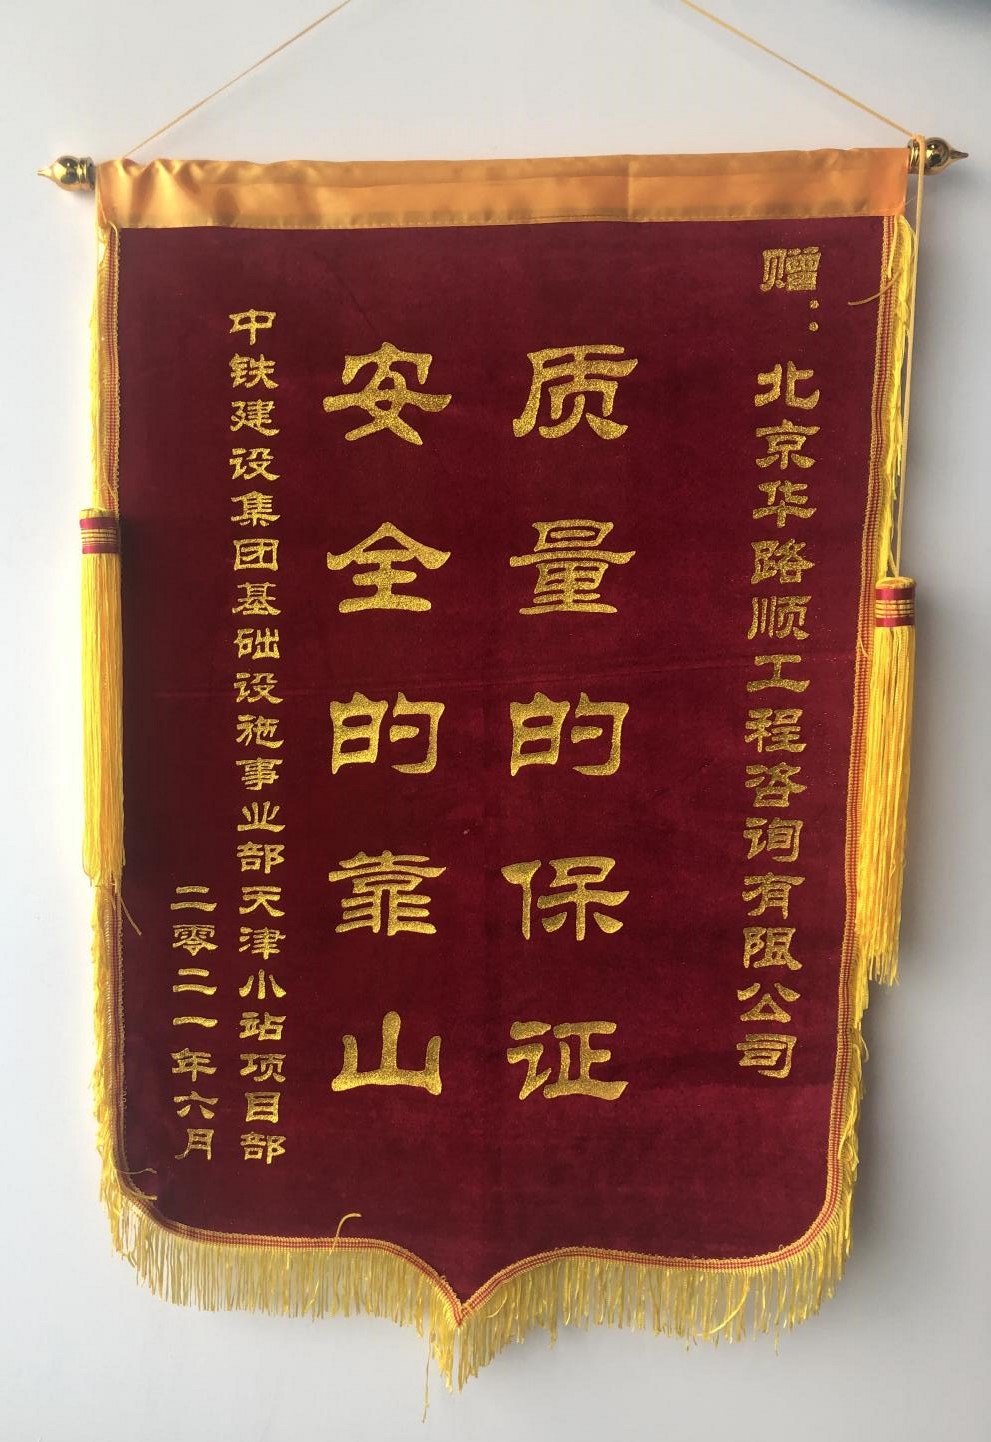 赠：北京华路顺工程咨询有限公司
质量的保证
安全的靠山
中铁建设集团基础设施事业部天津小站项目部
二零二一年六月